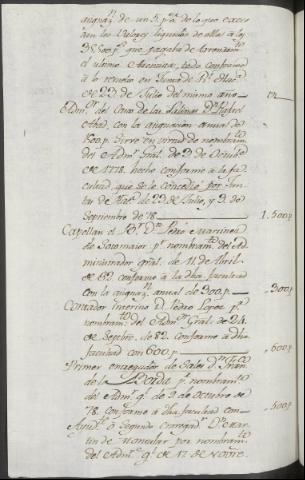 asignaⁿ. de un 5 pʳ. de lo que exce
den los Valores liquidos de ellas a los
38500 pˢ. que pagaba de
el ultimo todo conforme
á lo resuelto en Junta de Rˡ. Hazᵃ.
de 23 de Julio del mismo año
Admᵒʳ. del de las Salinas Dⁿ.
Abad, con la asignacion anual de
1500 p. Sirve en virtud de nombramᵗᵒ.
del Admᵒʳ. Gral. de 3 de Octubʳᵉ.
de 1778. hecho conforme á la fa
cultad que se le concedió por Jun
tas de Hazᵈᵃ. de 22 de Julio, y 2. de
Septiembre de 78. 1.500 p
Capellan el Bʳ. Dⁿ. Pedro Martinez
de Sotomaior pʳ. nombramᵗᵒ. del Ad
ministrador gral. de 11 de Abril
de 82 conforme á la dha facultad
con la asignaⁿ. anual de 300 p. 300 p
Contador interino Dⁿ. Pedro Lopez pʳ.
nombramᵗᵒ. del Admᵒʳ. Gral. de 24
de Sepbre. de 82. conforme á dha
facultad con 600 p. 600 p
Primer entregador de Sales Dⁿ. Juan
de la pʳ. nombramᵗᵒ.
del Admᵒʳ. gˡ. de 2 de Octubre de
78. conforme á dha facultad con 500 p
Ayudᵗᵉ. ó Segundo entregadʳ. Dⁿ. Mar
tin de por nombramᵗᵒ.
del Admᵒʳ. gˡ. de 17 de Novre.